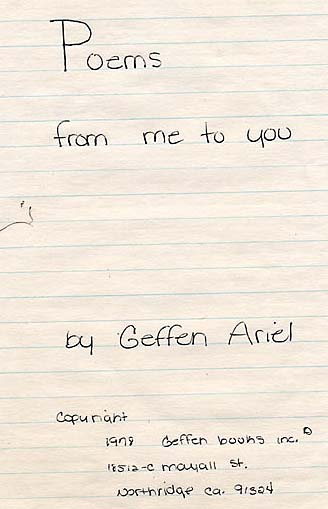 Poems
from me to you
by Geffen Ariel
Copyright
1978 Geffen books inc. ©
18512-C mayall st.
Northridge ca. 91324